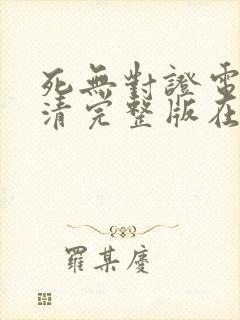 死無對證電
清完整版在
羅某慶